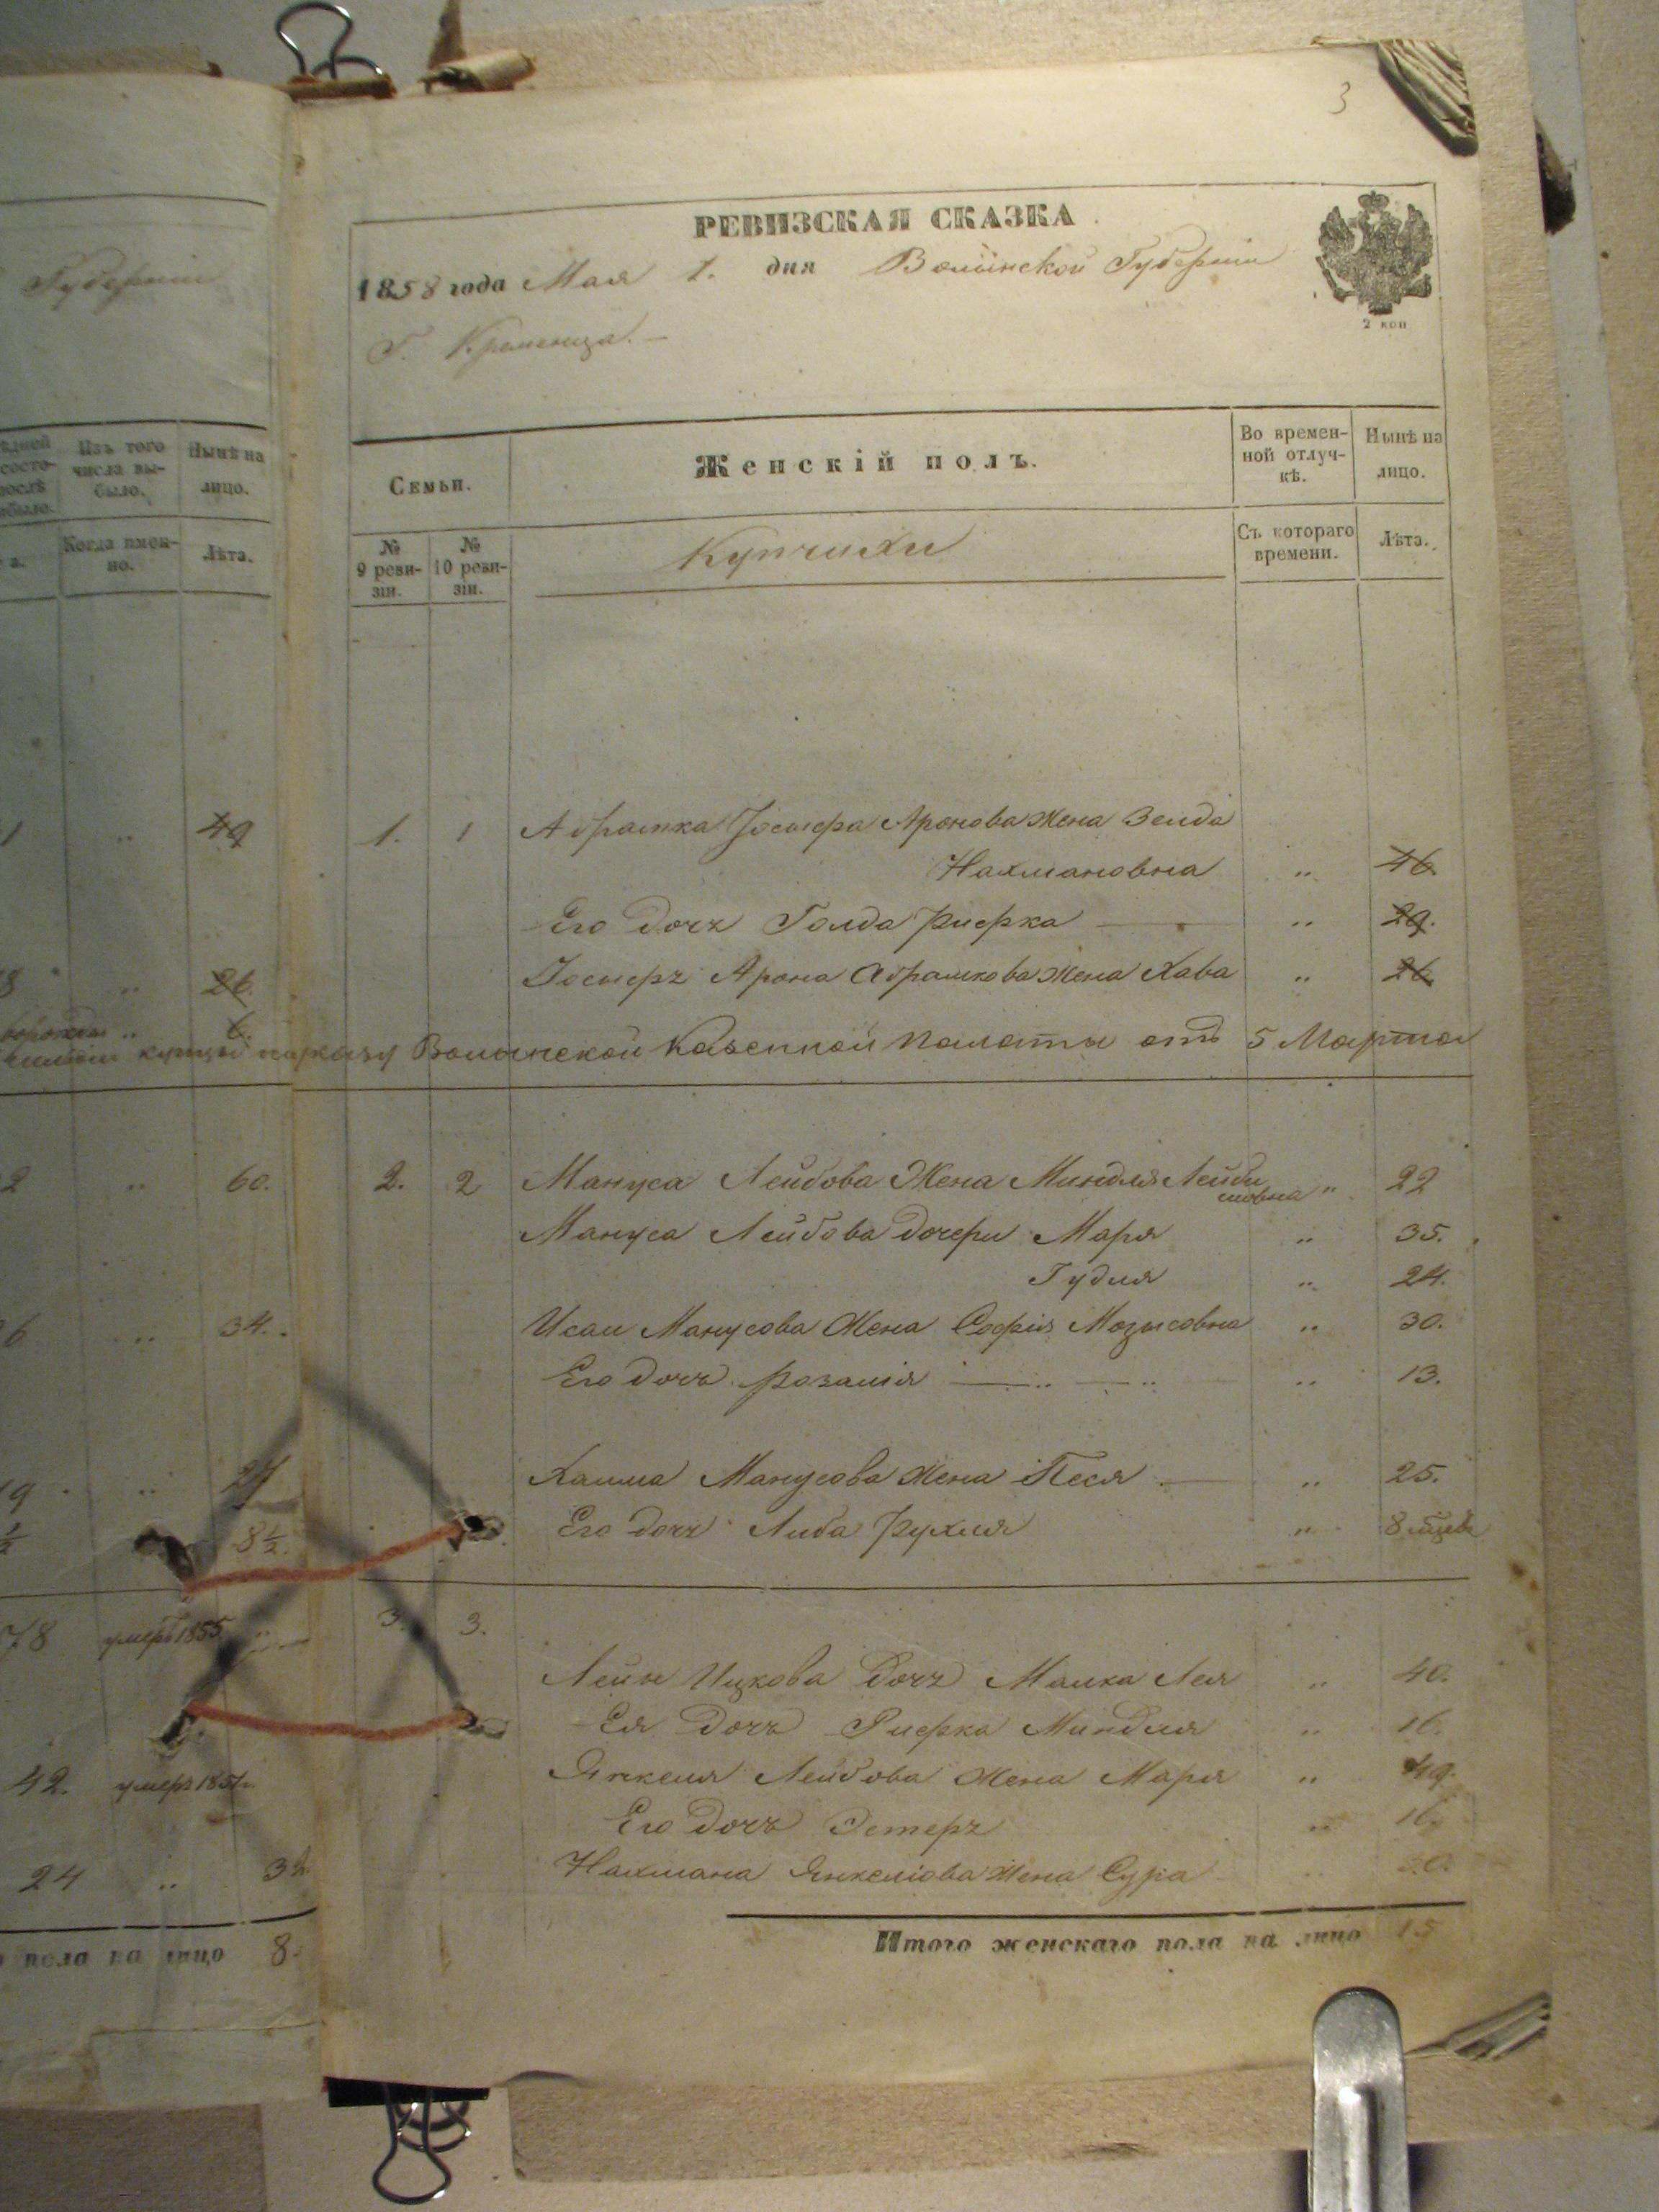 3
РЕВИЗСКАЯ СКАЗКА
1858 года Мая 1. дня Волынской Губерніи
Г. Кременца. —
2 коп
Губерніи
Изъ того числа вы-было.
Нынѣ на лицо.
Когда имен-но.
Лѣта.
Семьи.
Женскій полъ.
Во времен-
ной отлуч-
кѣ.
Нынѣ на
лицо.
№
9 реви-
зіи.
№
10 реви-
зіи.
Купчихи
Съ котораго
времени.
Лѣта.
49 1. 1 Абрамка Іосифа Аронова жена Зелда
Нахмановна „ 46
Его дочь Голда Рифка — „ 29.
26 Іосифъ Арона Абрамкова жена Хава „ 26
6.
купцы Волынской Казенной Палаты отъ 5 Марта
60. 2. 2 Мануса Лейбова Жена Миндля Лейби
„ 22
Мануса Лейбова дочери Маря „ 35.
Гудля „ 24.
34. Исаи Манусова Жена Софія Мозысовна „ 30.
Его дочь Розалія — „ — „ „ 13.
Хаима Манусова жена Песя — „ 25.
8½. Его дочь Либа Рухля „ 8
78 умеръ 1855 „ 3. 3.
Лейзы Ицкова дочь Малка Лея „ 40.
Ея дочь Рифка Миндля „ 16.
42. умеръ 1857г. Янкеля Лейбова жена Маря „ 49.
Его дочь Эстеръ „ 16.
24 „ 32 Нахмана Янкеліова жена Сура „ 30.
пола на лицо 8.
Итого женскаго пола на лицо 15